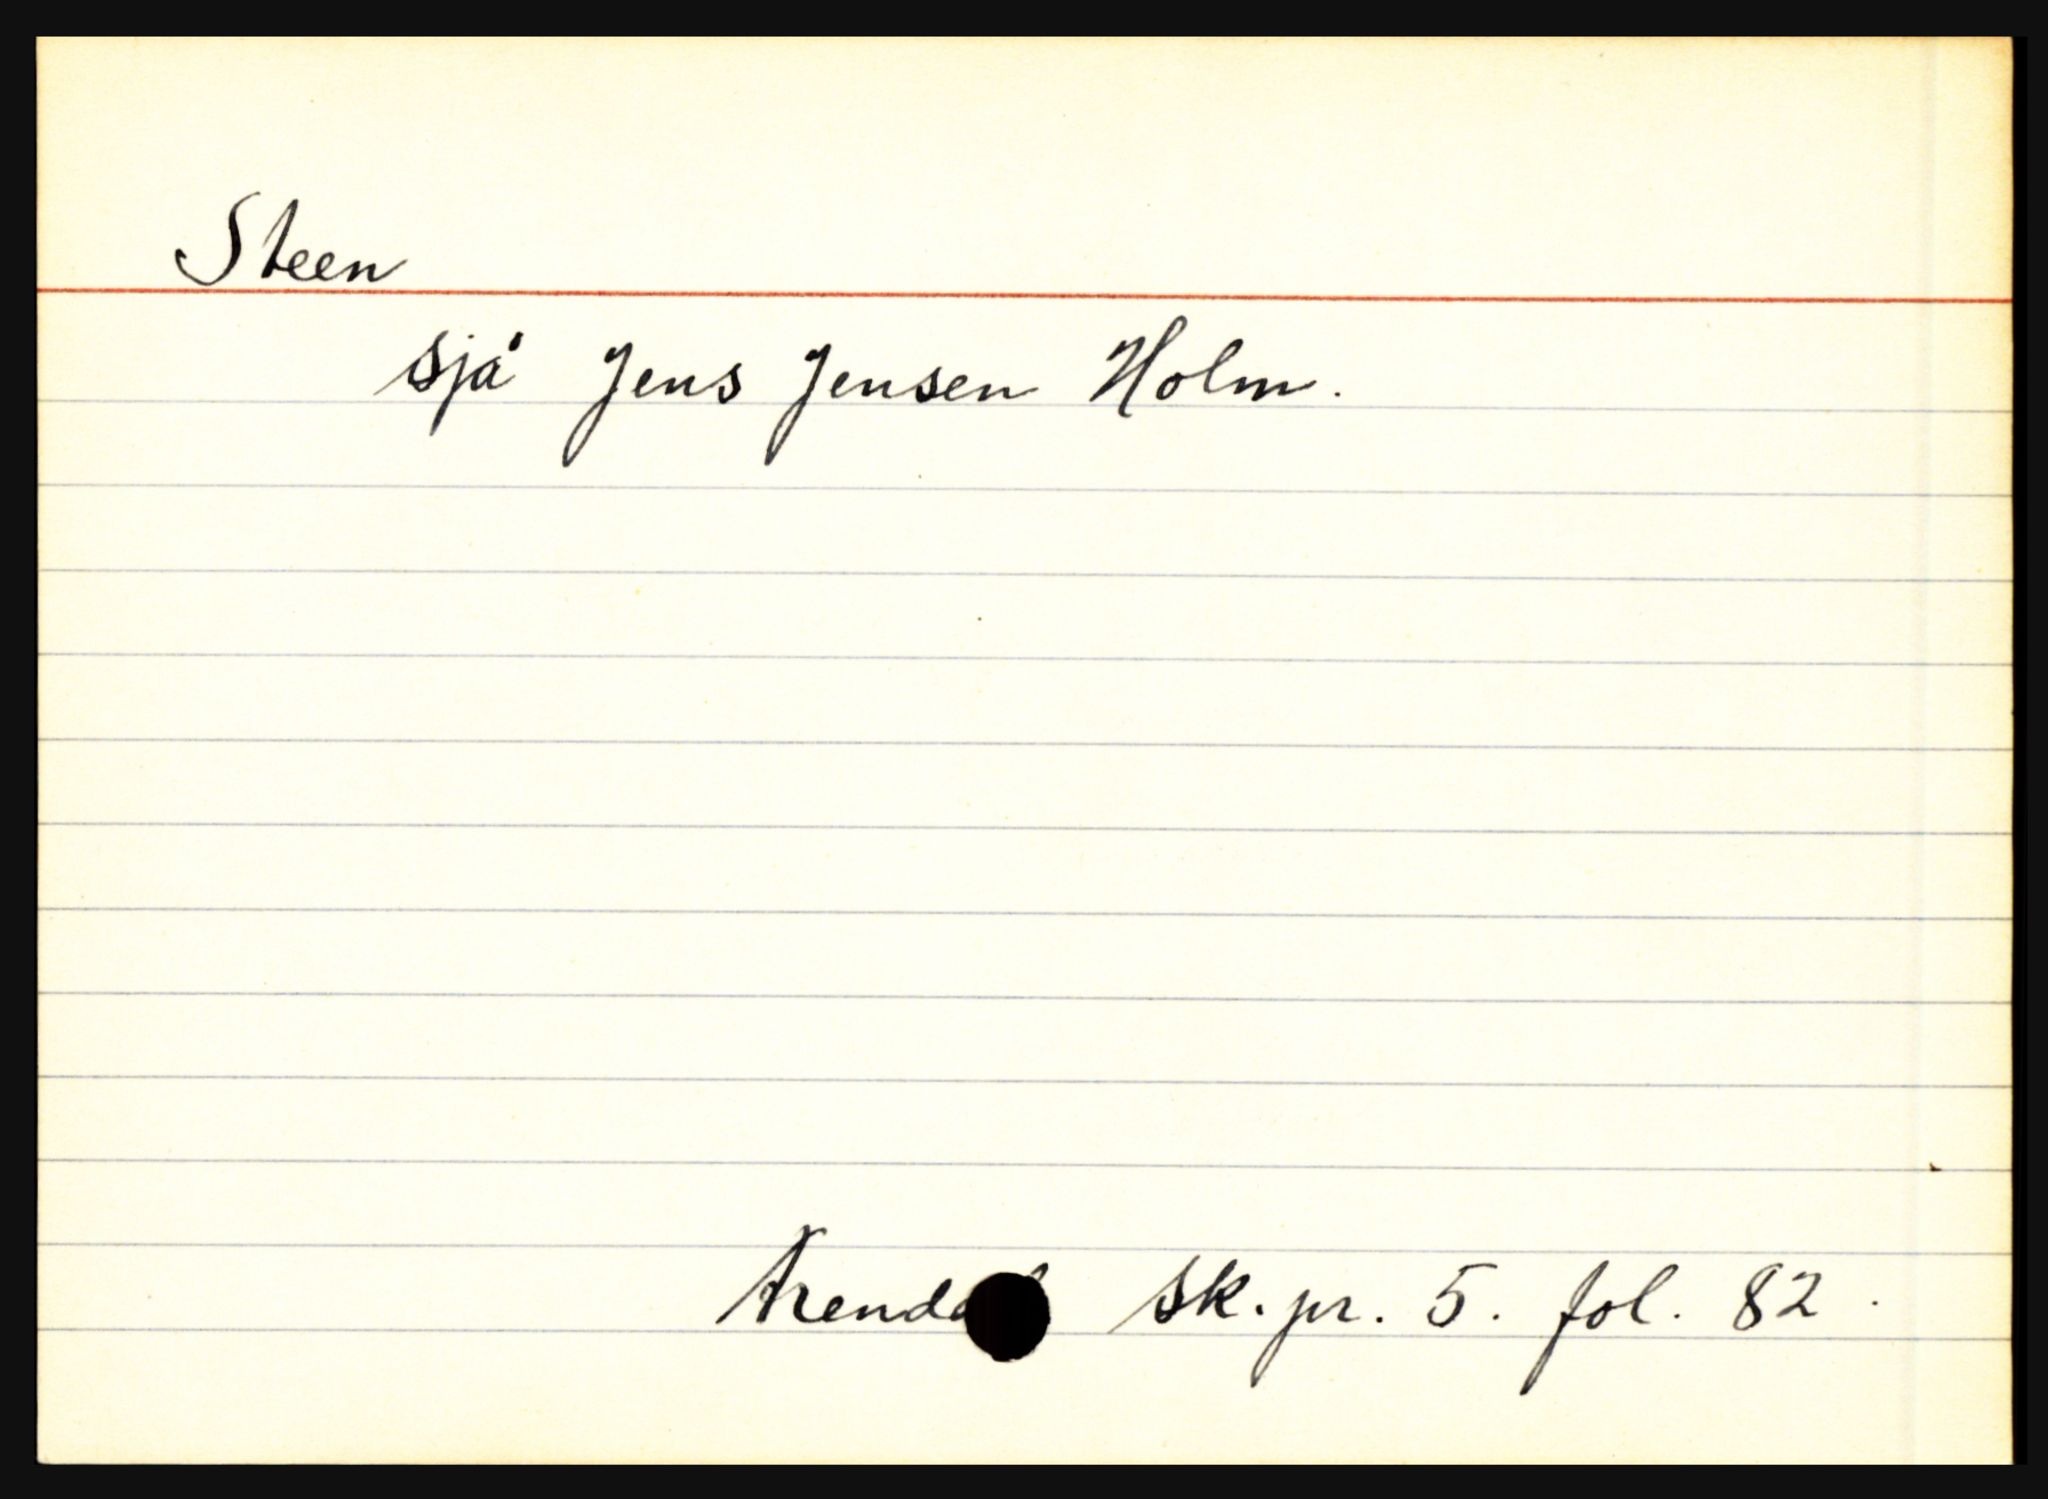 Steen
sjå Jens Jensen Holm.
Arendal sk.pr. 5. fol. 82.